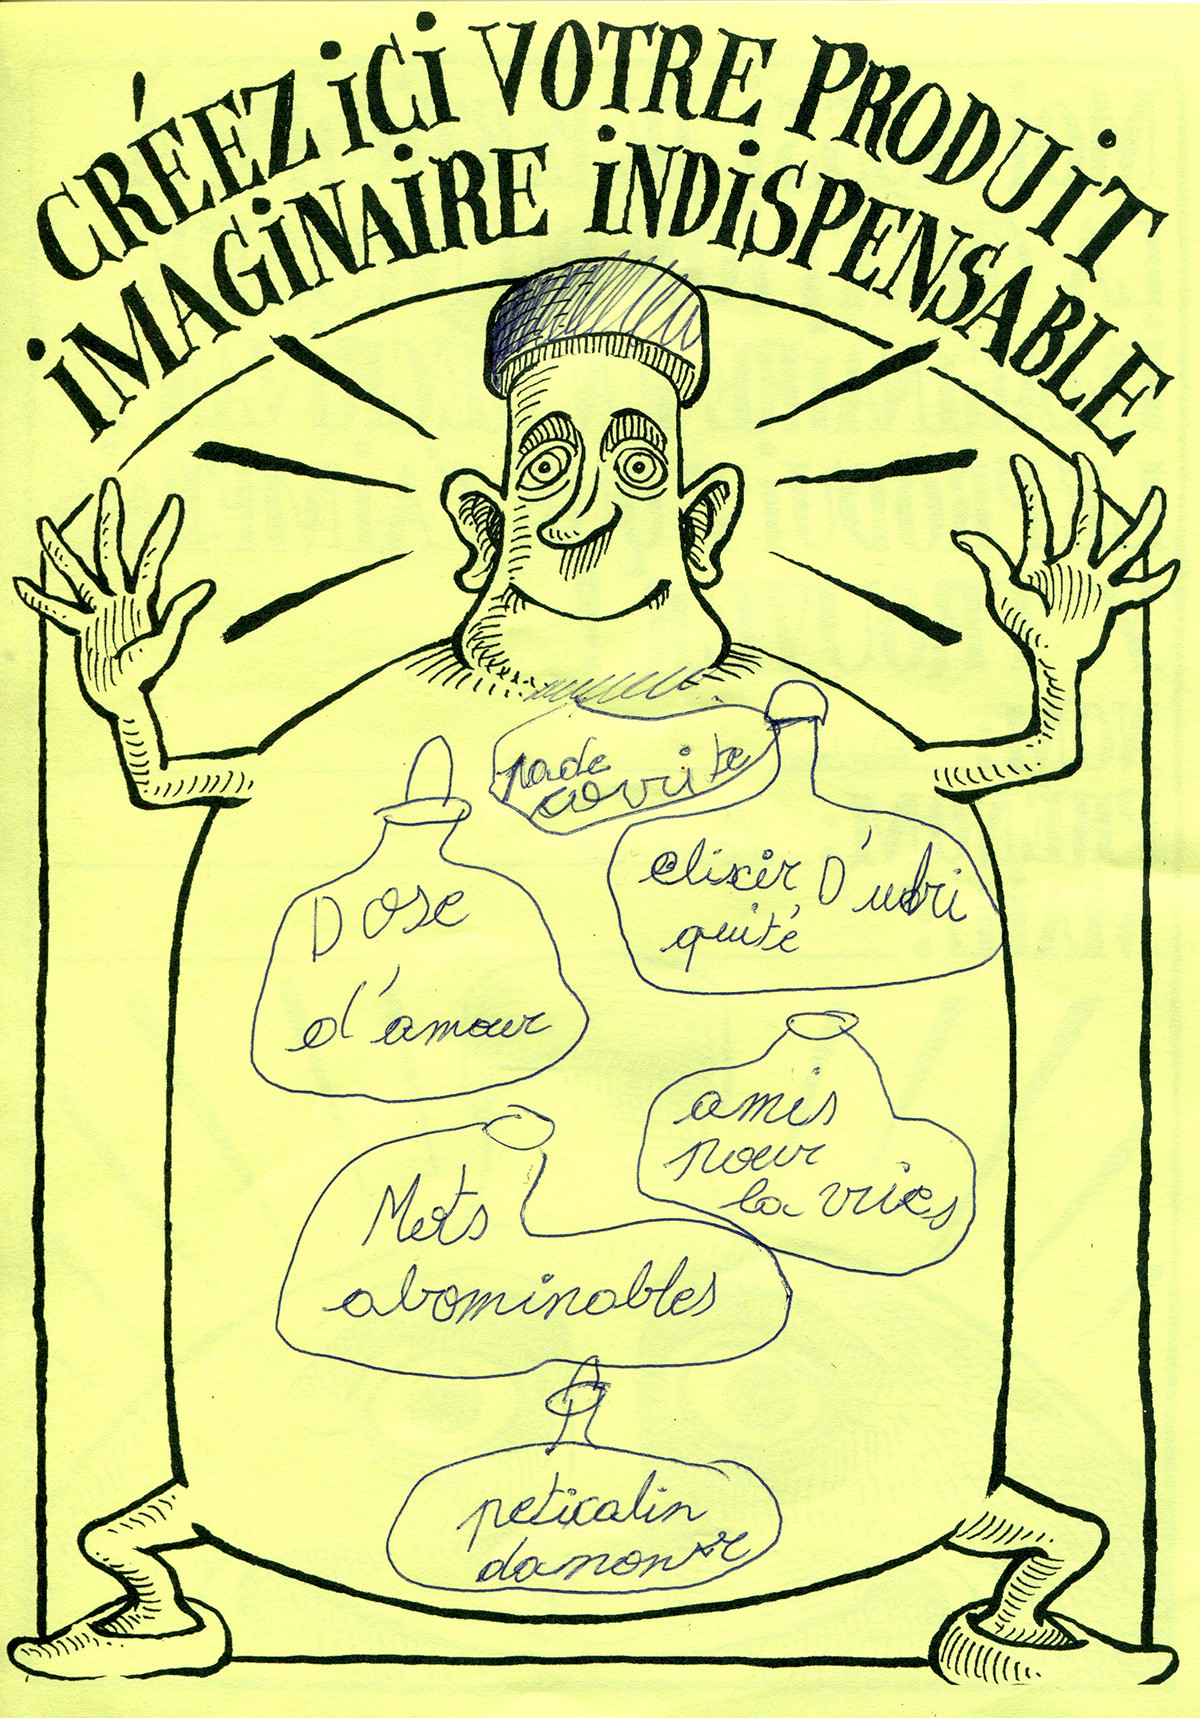 CRÉEZ ICI VOTRE PRODUIT
IMAGINAIRE INDISPENSABLE
pade
elixir D'ubi
quité
Dose
d'amour
amis
pour
la vries
Mots
abominables
peticalin